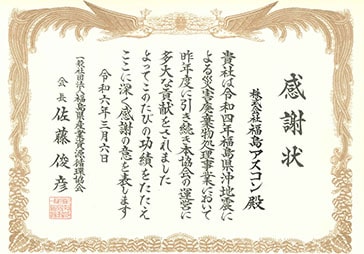 感謝状
株式会社福島アスコン殿
貴社は令和四年福島県沖地震に
よる災害廃棄物処理事業において
昨年度に引き続き本協会の運営に
多大な貢献をされました
よってこのたびの功績をたたえ
ここに深く感謝の意を表します
令和六年三月六日
一般社団法人福島県産業資源循環協会
会長 佐藤俊彦